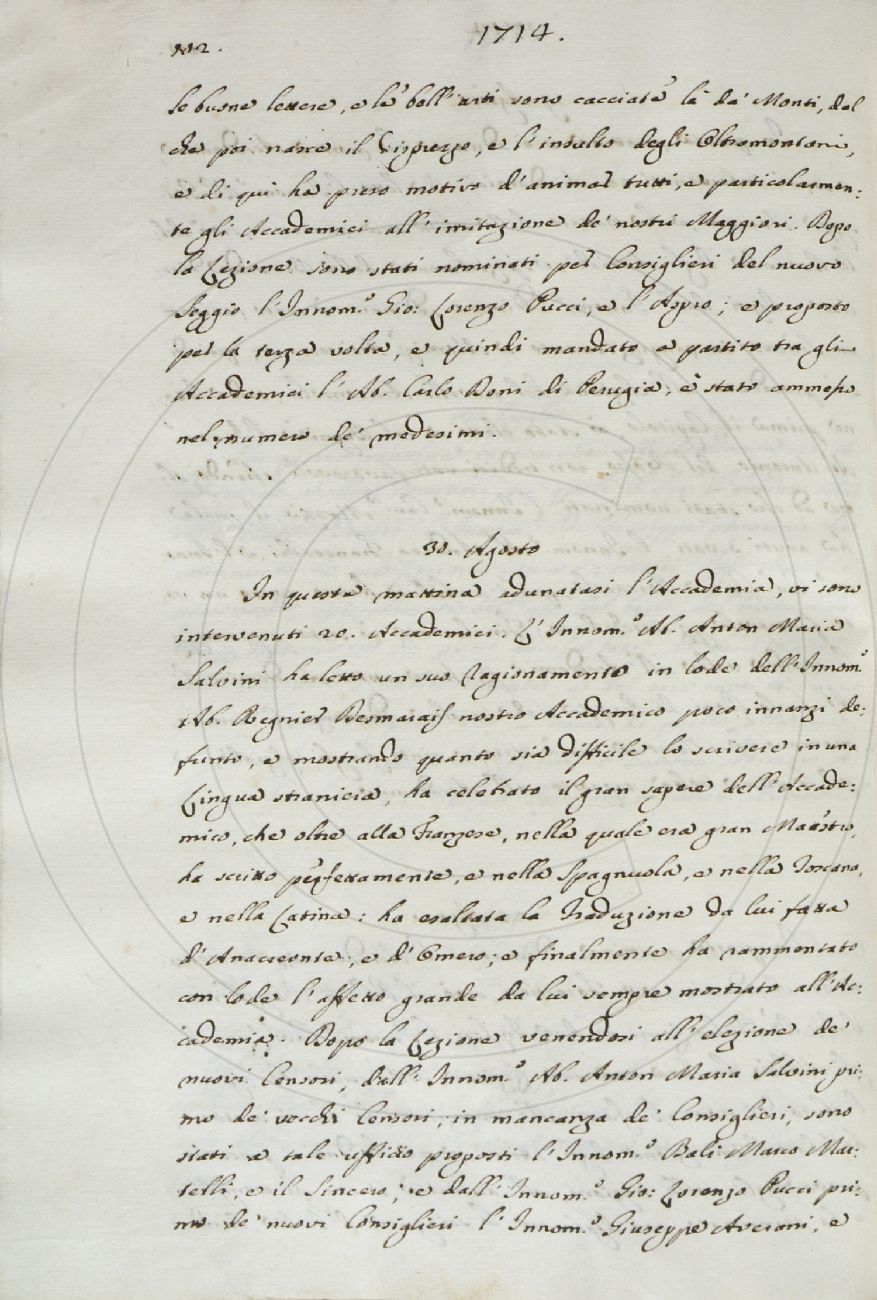 1714.
112.
le buone lettere, e le bell'arti sono cacciate là da' Monti, dal
che poi nasce il disprezzo, e l'insulto degli Oltramontani,
e di qui ha preso motivo d'animar tutti, e particolarmen:
te gli Accademici all'imitazione de' nostri Maggiori. Dopo
la Lezione sono stati nominati per Consiglieri del nuovo
Seggio l'Innom.º Gio: Lorenzo Pucci, e l'Aspro; e proposto
per la terza volta, e quindi mandato a partito tra gli
Accademici l'Ab. Carlo Doni di Perugia, è stato ammesso
nel numero de' medesimi.
30. Agosto
In questa mattina adunatasi l'Accademia, vi sono
intervenuti 20. Accademici. L'Innom.º Ab. Anton Maria
Salvini ha letto un suo Ragionamento in lode dell'Innom.º
Ab. Regnier Desmarais nostro Accademico poco innanzi de:
funto, e mostrando quanto sia difficile lo scrivere in una
Lingua straniera, ha celebrato il gran sapere dell'Accade:
mico, che oltre alla Franzese, nella quale era gran Maestro,
ha scritto perfettamente, e nella Spagnuola, e nella Toscana,
e nella Latina: ha esaltata la Traduzione da lui fatta
d'Anacreonte, e d'Omero; e finalmente ha rammentato
con lode l'affetto grande da lui sempre mostrato all'Ac:
cademia. Dopo la Lezione venendosi all'elezione de'
nuovi Censori, dall'Innom.º Ab. Anton Maria Salvini pri:
mo de' vecchi Censori, in mancanza de' Consiglieri, sono
stati a tale uffizio proposti l'Innom.º Balì Marco Mar:
telli, e il Sincero; e dall'Innom.º Gio: Lorenzo Pucci pri:
mo de' nuovi Consiglieri l'Innom.º Giuseppe Averani, e